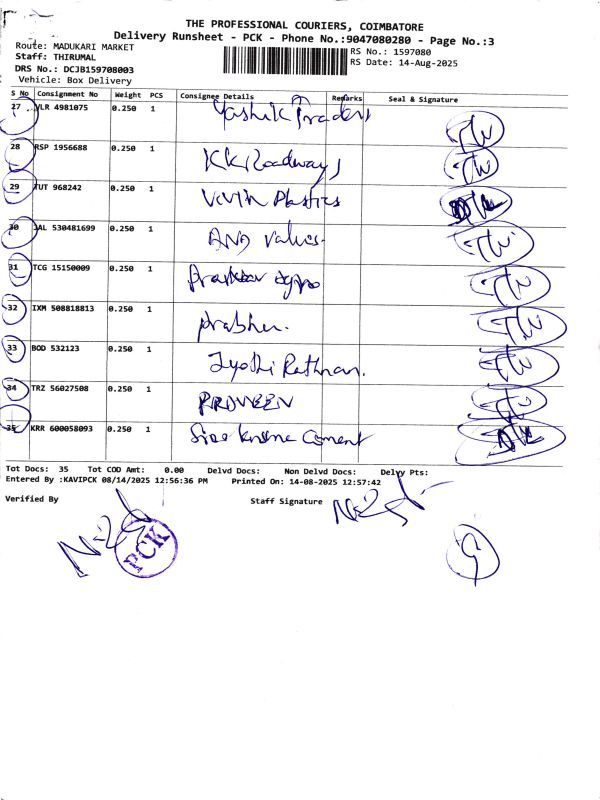 THE PROFESSIONAL COURIERS, COIMBATORE
Delivery Runsheet - PCK - Phone No.:9047080280 - Page No.:3
Route: MADUKARI MARKET
RS No.: 1597080
Staff: THIRUMAL
RS Date: 14-Aug-2025
DRS No.: DCJB159708003
Vehicle: Box Delivery
S No Consignment No Weight PCS Consignee Details Remarks Seal & Signature
27 VLR 4981075 0.250 1 Yashik Traders
28 RSP 1956688 0.250 1 KK Roadways
29 TUT 968242 0.250 1 ViVin Plastics
30 JAL 530481699 0.250 1 AND Valves.
31 TCG 15150009 0.250 1
32 IXM 508818813 0.250 1 prabhu.
33 BOD 532123 0.250 1 Jyothi Rathnan.
34 TRZ 56027508 0.250 1 PRAVEEN
35 KRR 600058093 0.250 1 Cement
Tot Docs: 35 Tot COD Amt: 0.00 Delvd Docs: Non Delvd Docs: Delvy Pts:
Entered By :KAVIPCK 08/14/2025 12:56:36 PM Printed On: 14-08-2025 12:57:42
Verified By Staff Signature
PCK